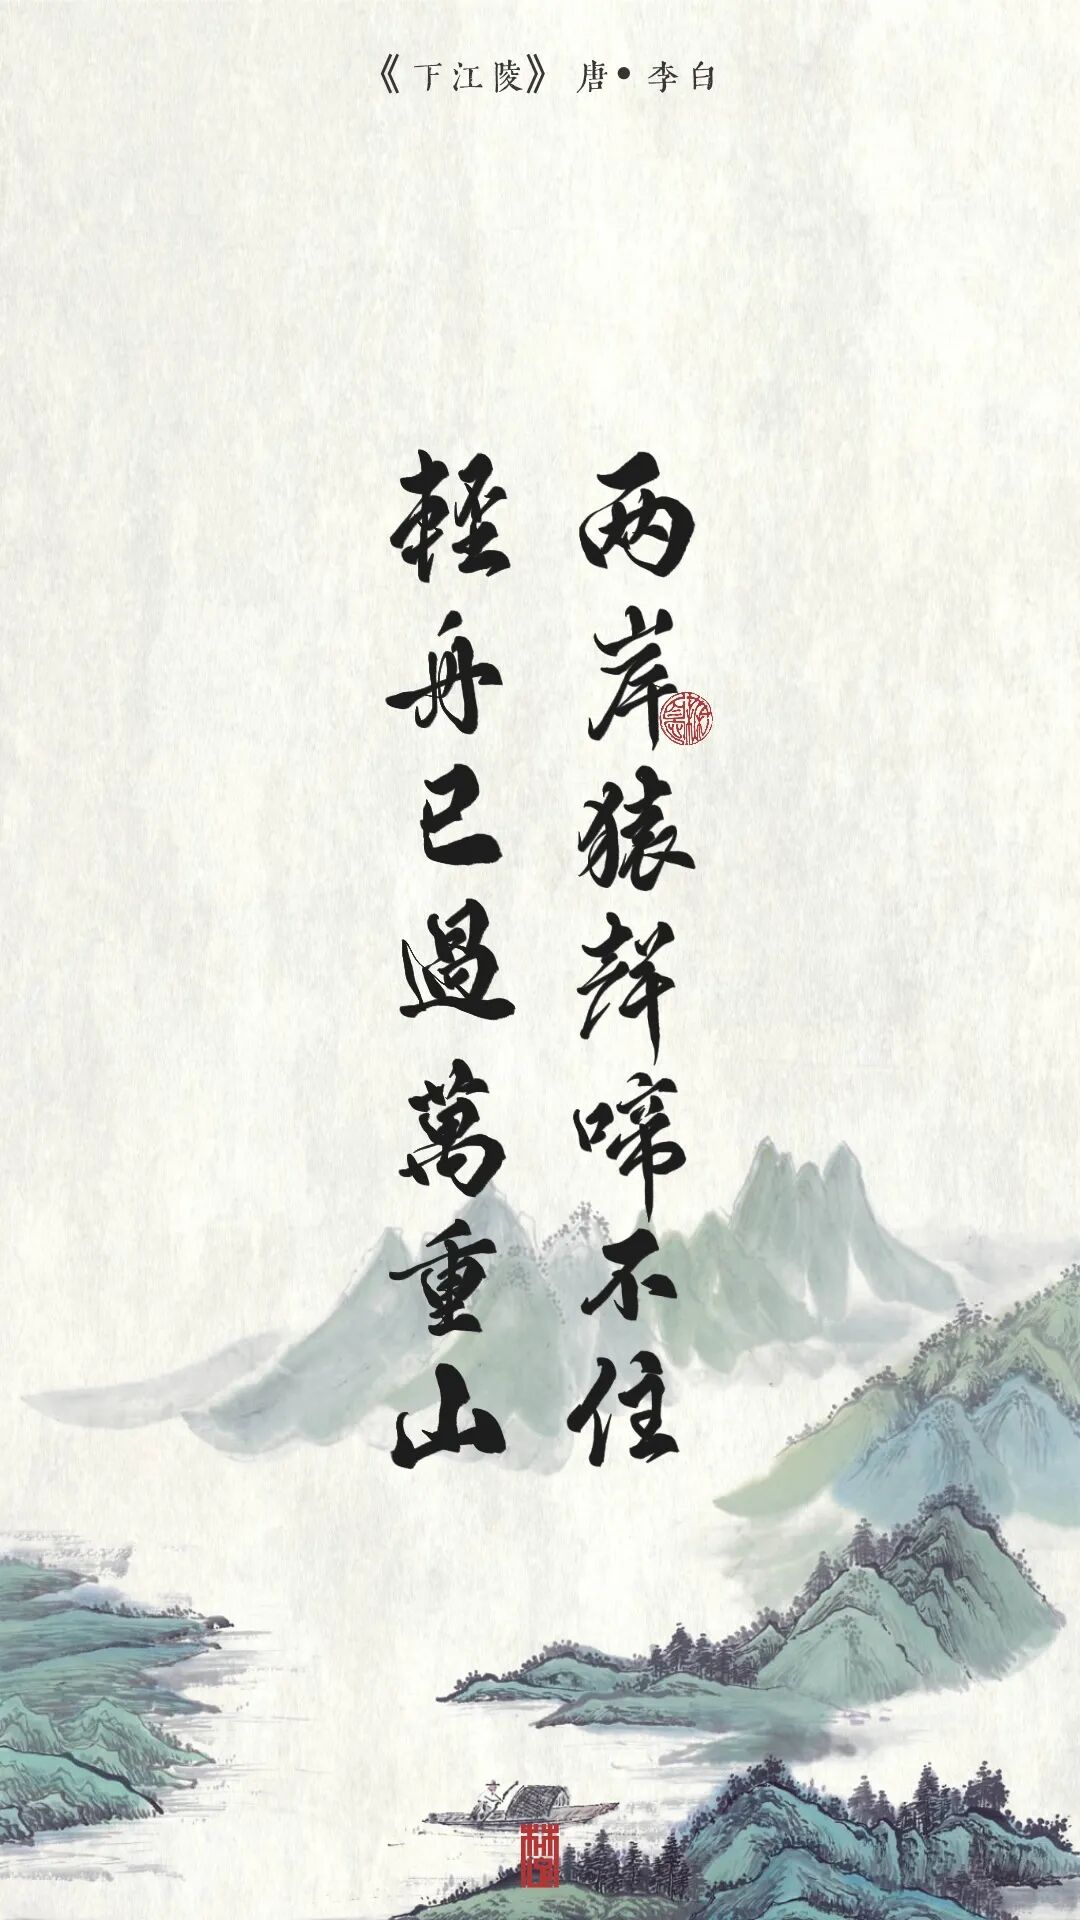 《下江陵》 唐•李白
两岸猿聲啼不住
輕舟已過萬重山